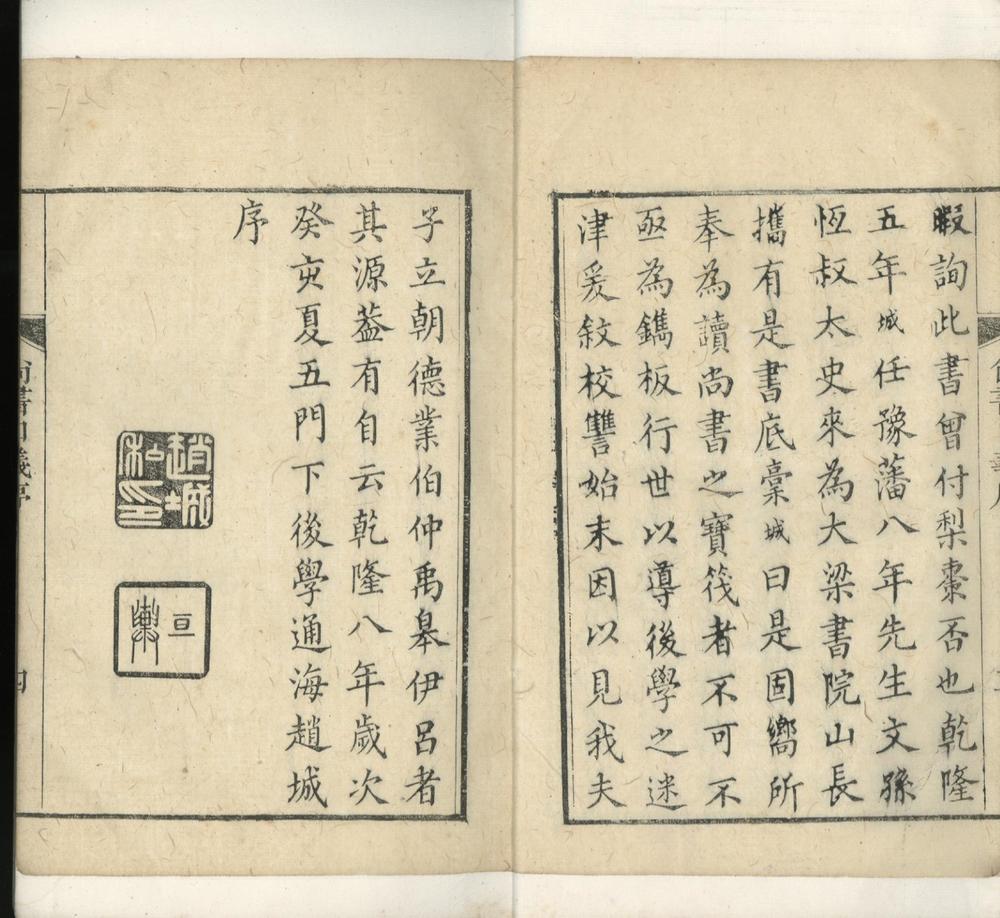 暇詢此書曾付梨棗否也乾隆
五年城任豫藩八年先生文孫
恆叔太史來為大梁書院山長
攜有是書底稾城曰是固嚮所
奉為讀尚書之寶筏者不可不
亟為鐫板行世以導後學之迷
津爰敘校讐始末因以見我夫
子立朝德業伯仲禹皋伊呂者
其源葢有自云乾隆八年歲次
癸亥夏五門下後學通海趙城
序
趙城
私印
亘輿
四